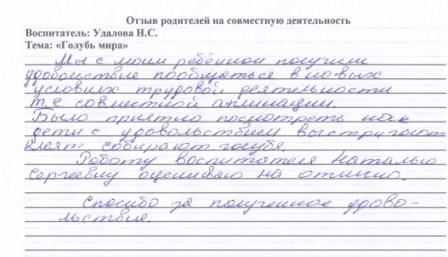 Отзыв родителей на совместную деятельность
Воспитатель: Удалова Н.С.
Тема: «Голубь мира»
Мы с моим ребёнком получили
удовольствие пообщаться в новых
условиях трудовой деятельности
т.е совместной аппликации.
Было приятно посмотреть как
дети с удовольствием выстригают
клеят собирают голубя.
Работу воспитателя Наталью
Сергеевну оцениваю на отлично.
Спасибо за полученное удово-
льствие.